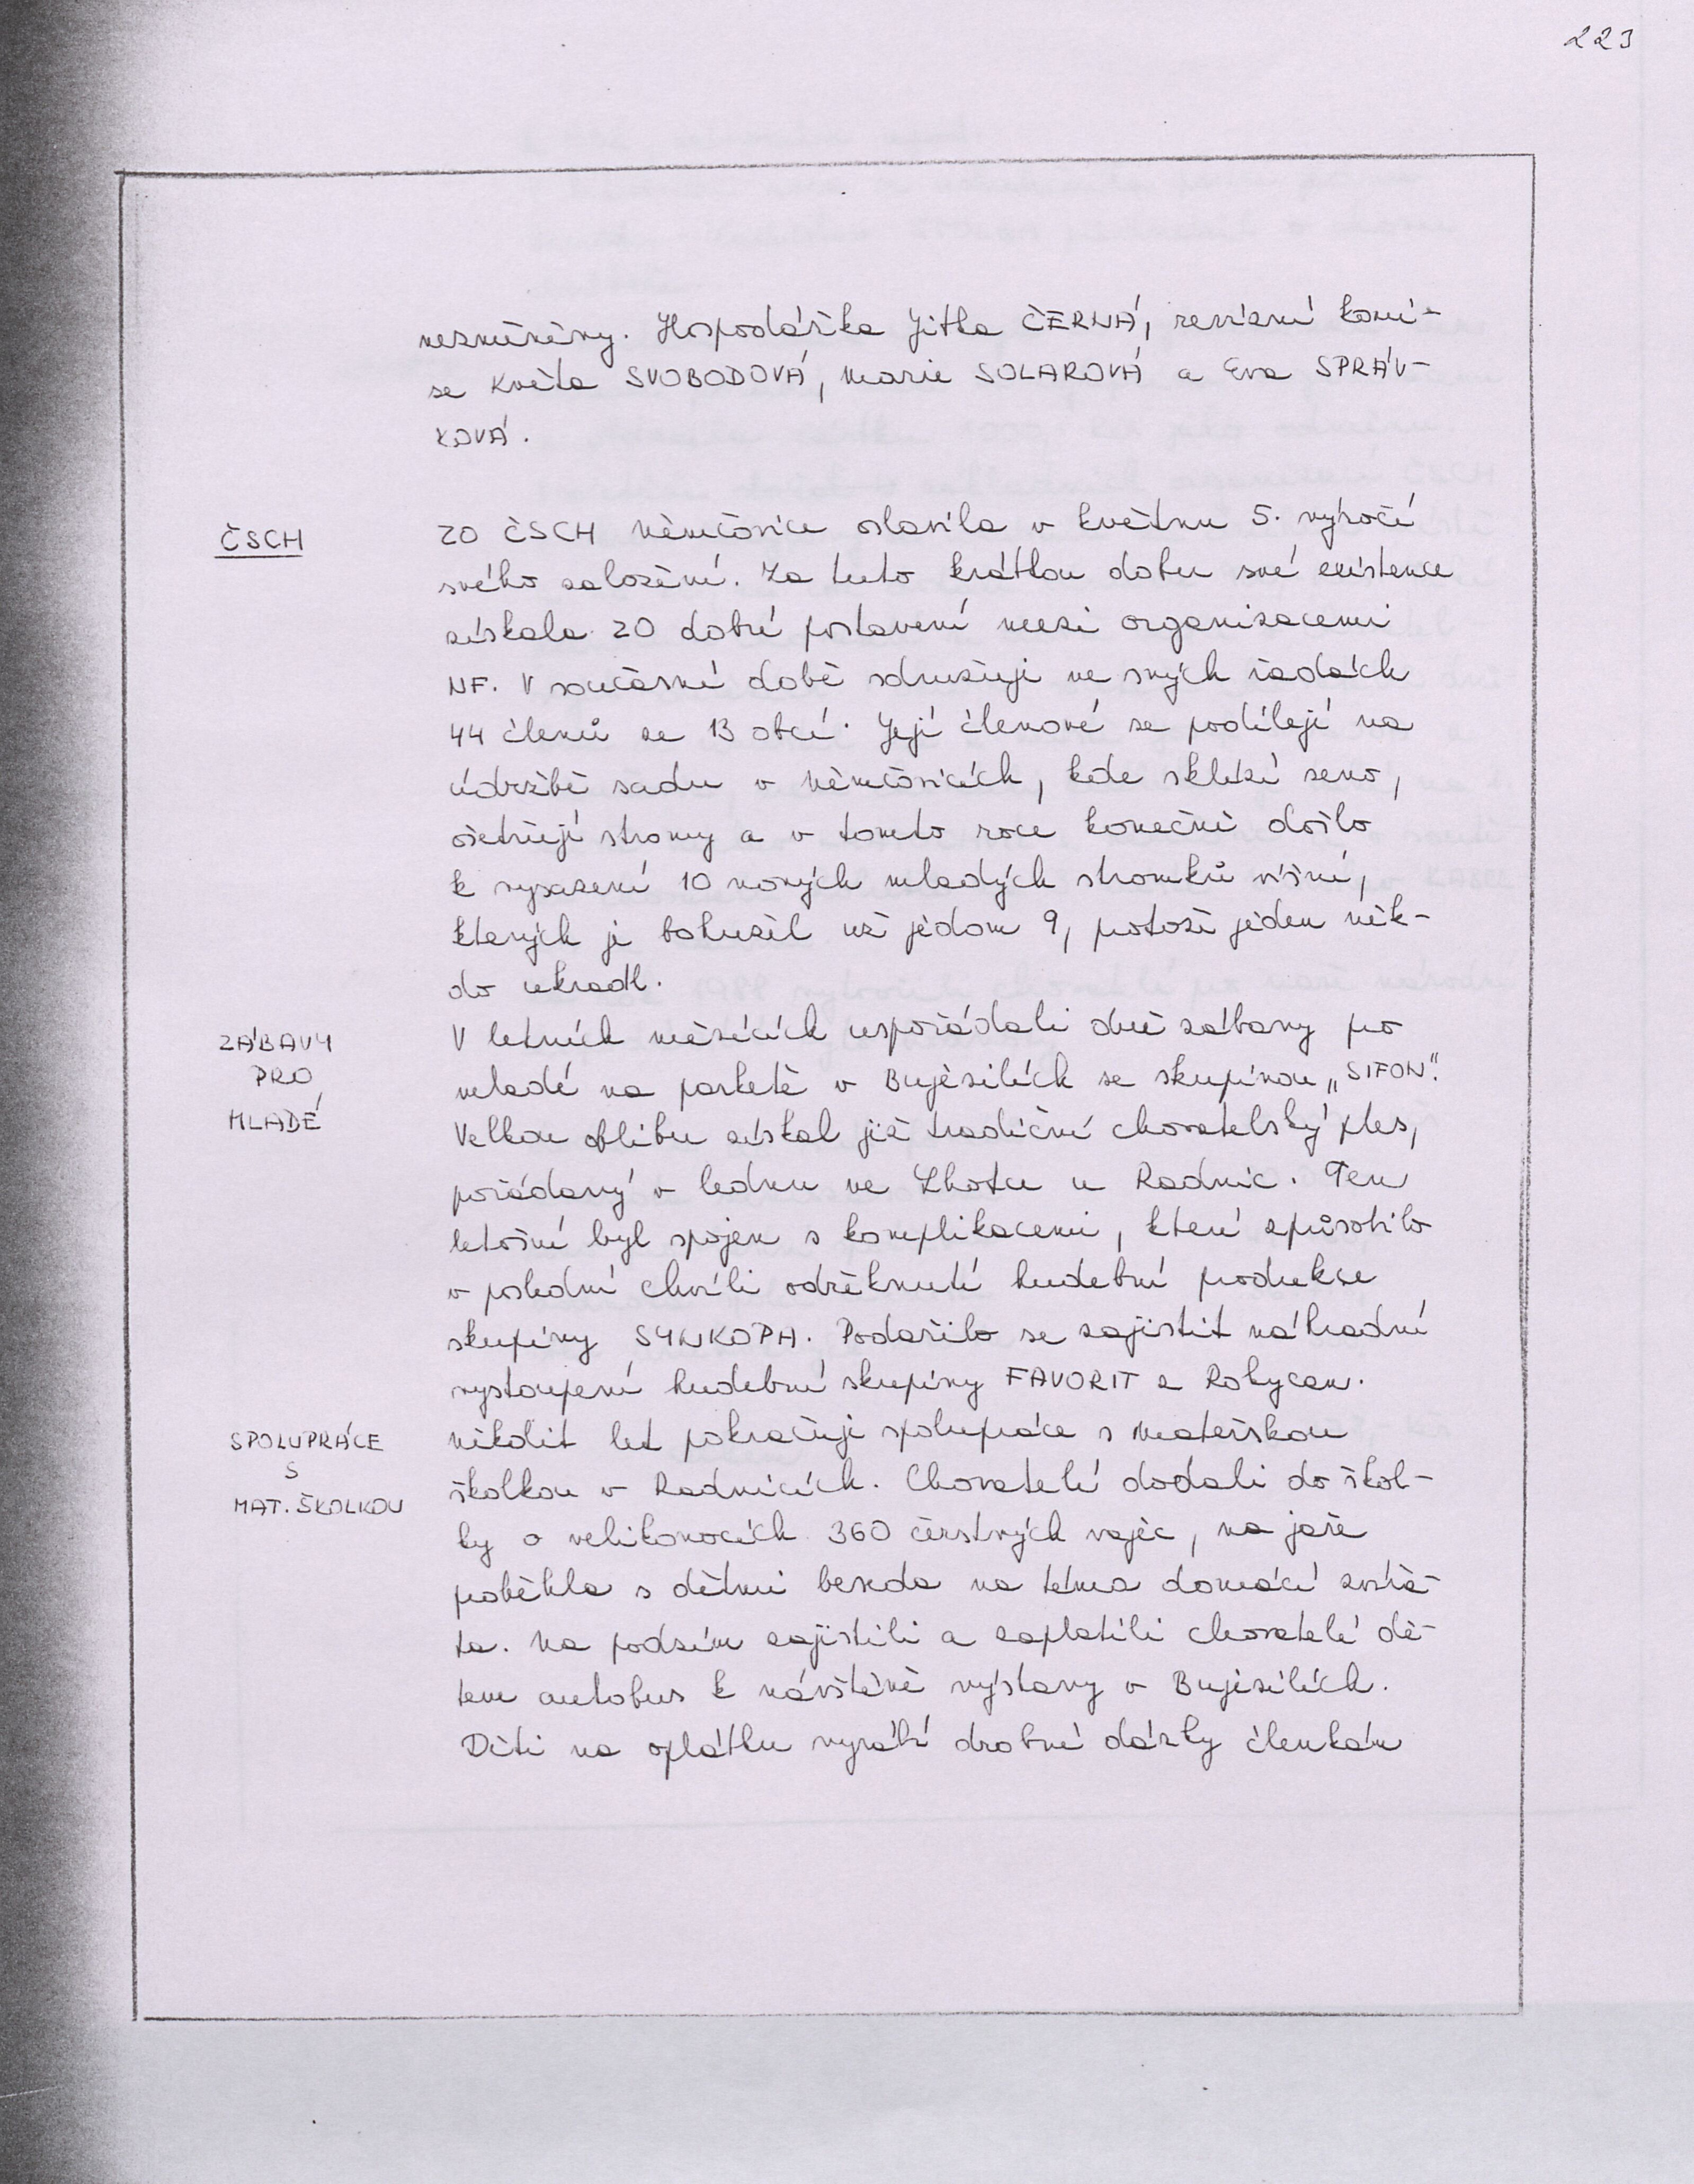 223
nezměněny. Hospodářka Jitka ČERNÁ, revizní komi-
se Květa SVOBODOVÁ, Marie SOLAROVÁ a Eva SPRÁV-
KOVÁ.
ČSCH
ZO ČSCH Němčovice oslavila v květnu 5. výročí
svého založení. Za tuto krátkou dobu své existence
získala ZO dobré postavení mezi organizacemi
NF. V současné době sdružuje ve svých řadách
44 členů ze 13 obcí. Její členové se podílejí na
údržbě sadu v Němčovicích, kde sklízí seno,
ošetřují stromy a v tomto roce konečně došlo
k vysazení 10 nových mladých stromků višní,
kterých je bohužel už jedom 9, protože jeden něk-
do ukradl.
ZÁBAVY
PRO
MLADÉ
V letních měsících uspořádali dvě zábavy pro
mladé na parketě v Bujesilích se skupinou „SIFON".
Velkou oblibu získal již tradiční chovatelský ples,
pořádaný v lednu ve Lhotce u Radnic. Ten
letošní byl spojen s komplikacemi, které způsobilo
v poslední chvíli odřeknutí hudební produkce
skupiny SYNKOPA. Podařilo se zajistit náhradní
vystoupení hudební skupiny FAVORIT z Rokycan.
SPOLUPRÁCE
S
MAT. ŠKOLKOU
Několit let pokračuje spolupráce s Mateřskou
školkou v Radnicích. Chovatelé dodali do škol-
ky o velikonocích 360 čerstvých vajec, na jaře
proběhla s dětmi beseda na téma domácí zvířa-
ta. Na podzim zajistili a zaplatili chovatelé dě-
tem autobus k návštěvě výstavy v Bujesilích.
Děti na oplátku vyrábí drobné dárky členkám